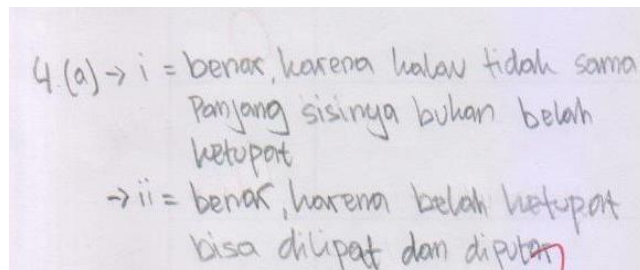 4.(a) → i = benar, karena kalau tidak sama
Panjang sisinya bukan belah
ketupat
→ ii = benar, karena belah ketupat
bisa dilipat dan diputar